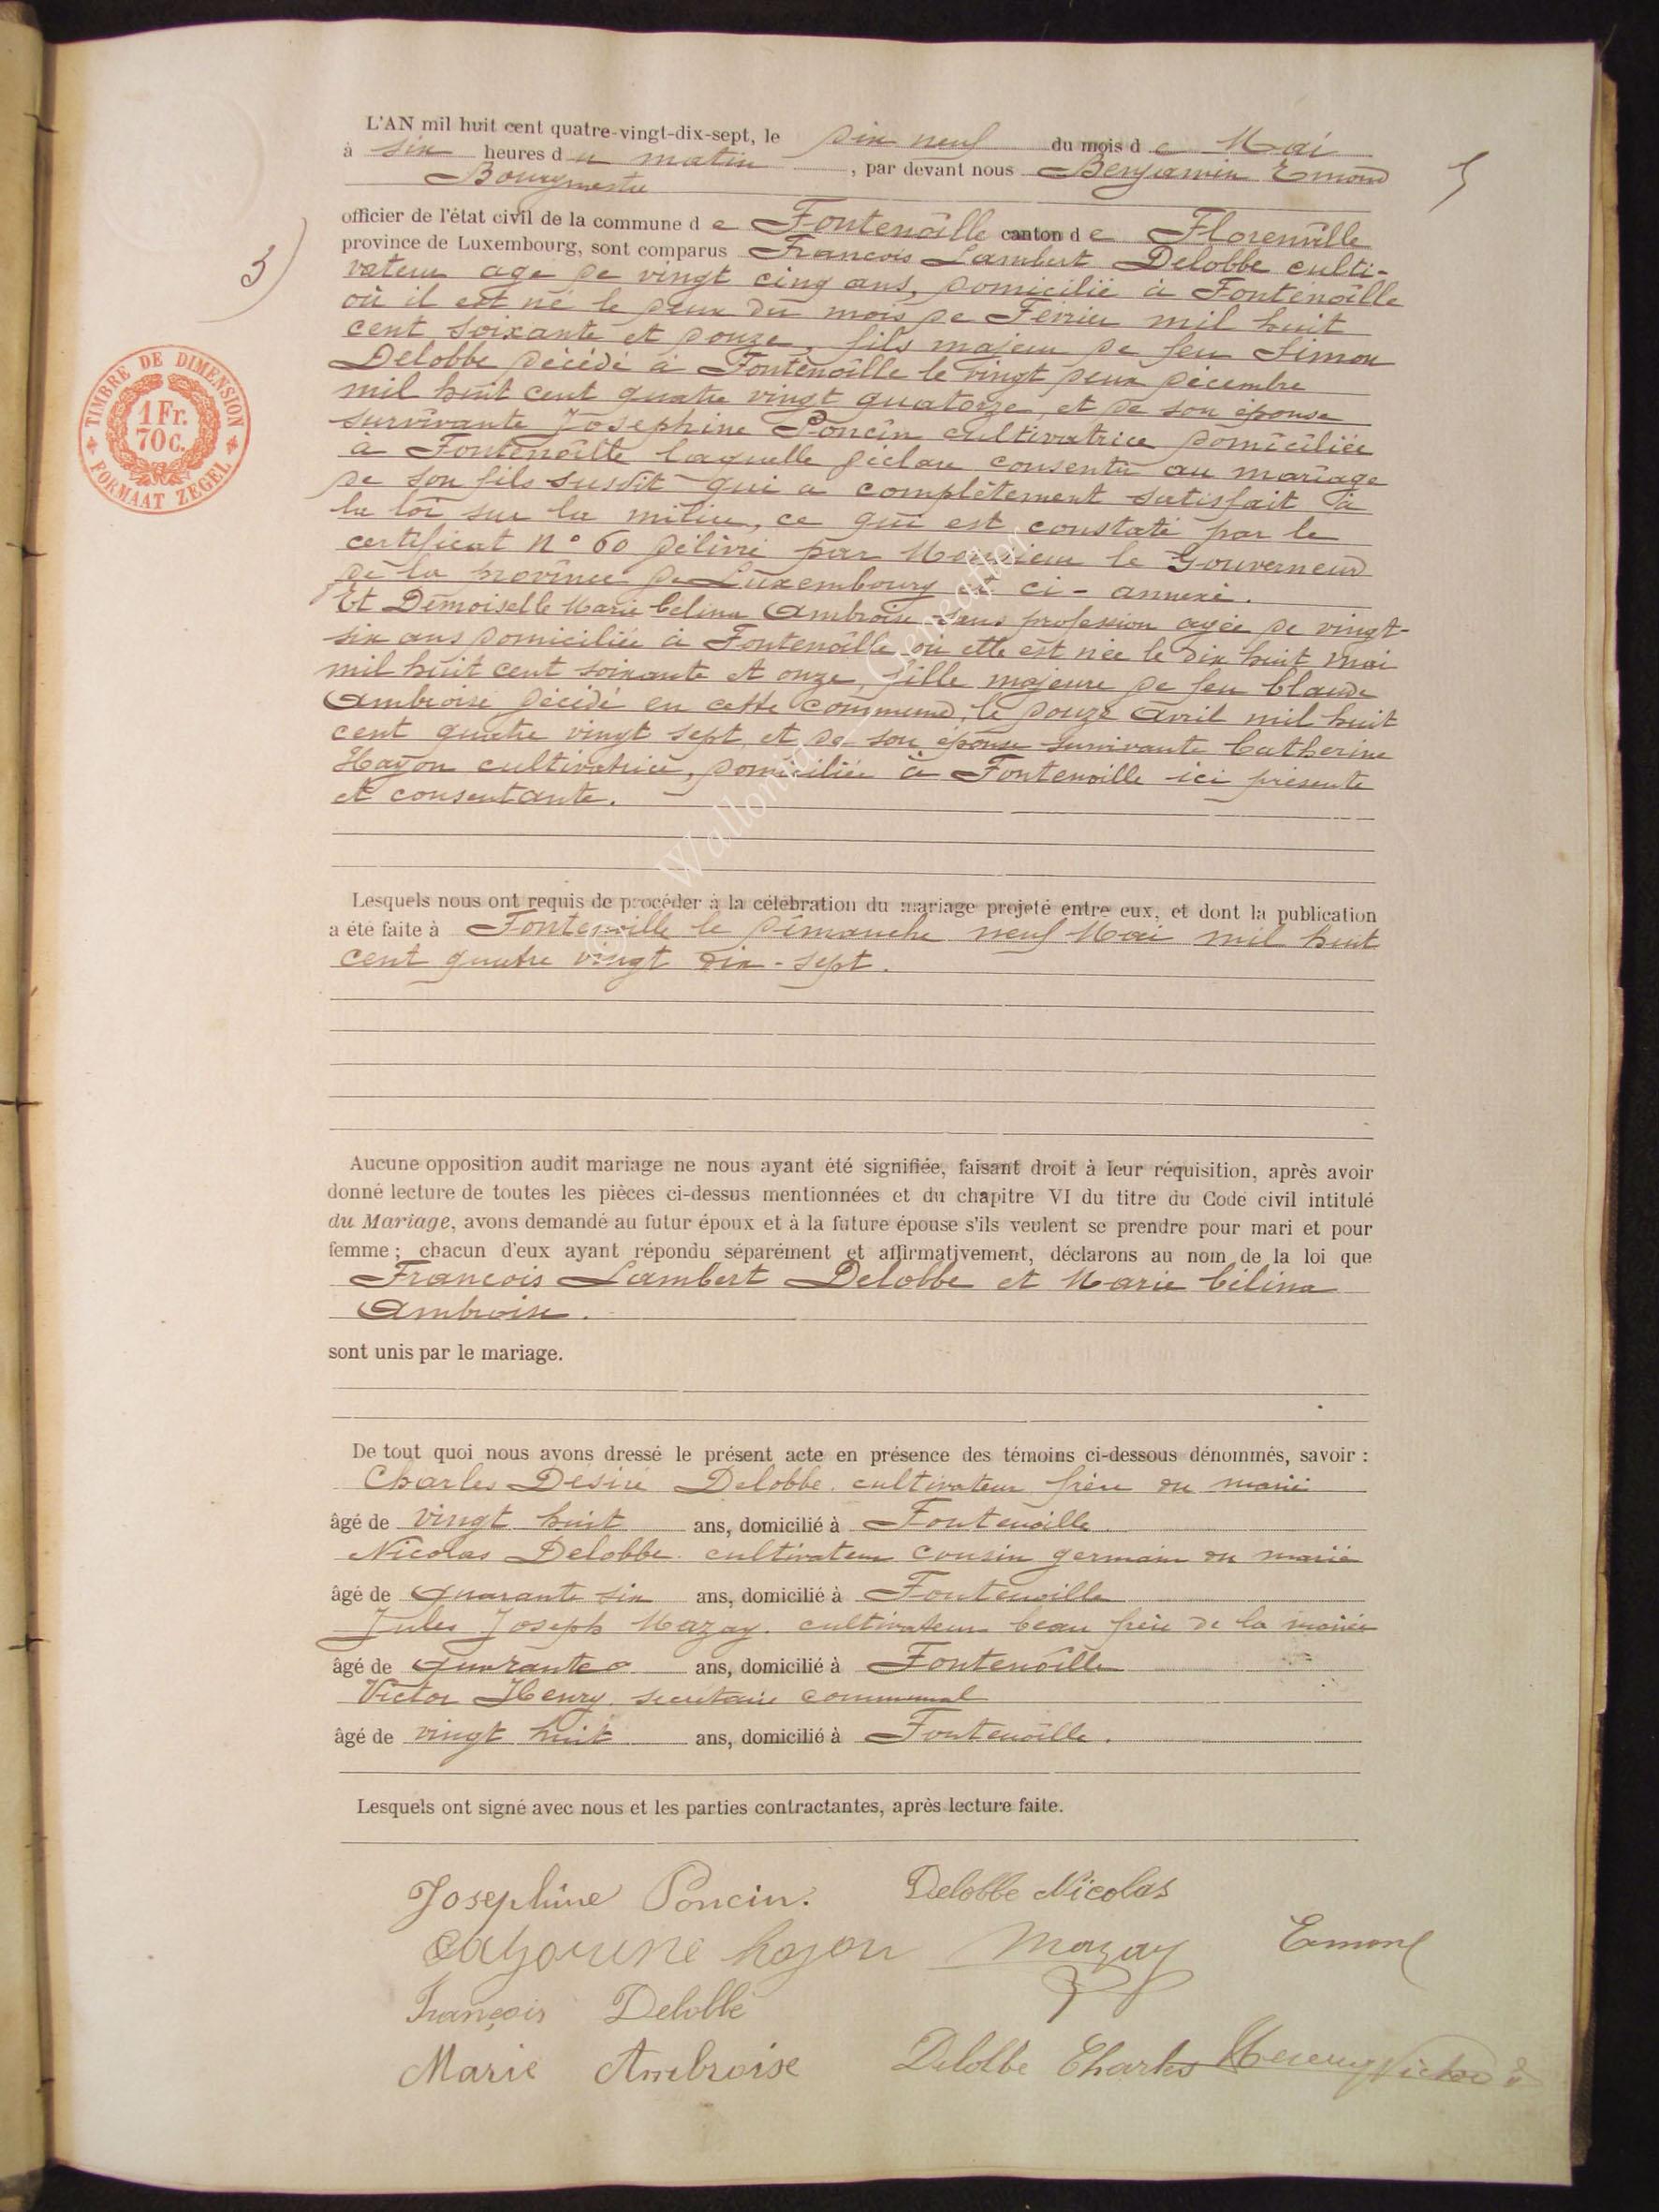 L'AN mil huit cent quatre-vingt-dix-sept, le dix neuf du mois de Mai
à six heures du matin, par devant nous Benjamin Emond
Bourgmestre
officier de l'état civil de la commune de Fontenoille canton de Florenville
province de Luxembourg, sont comparus Francois Lambert Delobbe culti-
vateur age de vingt cinq ans, domicilié à Fontenoille
où il est né le deux du mois de Février mil huit
cent soixante et douze, fils majeur de feu Simon
Delobbe décédé à Fontenoille le vingt deux décembre
mil huit cent quatre vingt quatorze, et de son épouse
survivante Josephine Poncin cultivatrice domiciliée
à Fontenoille laquelle déclare consentir au mariage
de son fils susdit qui a complètement satisfait à
la loi sur la milice, ce qui est constaté par le
certificat N° 60 délivré par Monsieur le Gouverneur
de la province de Luxembourg et ci-annexé.
Et Demoiselle Marie Célina Ambroise sans profession agée de vingt-
six ans domiciliée à Fontenoille où elle est née le dix huit mai
mil huit cent soixante et onze, fille majeure de feu Claude
Ambroise décédé en cette commune, le douze avril mil huit
cent quatre vingt sept, et de son épouse survivante Catherine
Hayon cultivatrice, domiciliée à Fontenoille ici présente
et consentante.
Lesquels nous ont requis de procéder à la célébration du mariage projeté entre eux, et dont la publication
a été faite à Fontenoille le Dimanche neuf Mai mil huit
cent quatre vingt dix-sept.
Aucune opposition audit mariage ne nous ayant été signifiée, faisant droit à leur réquisition, après avoir
donné lecture de toutes les pièces ci-dessus mentionnées et du chapitre VI du titre du Code civil intitulé
du Mariage, avons demandé au futur époux et à la future épouse s'ils veulent se prendre pour mari et pour
femme ; chacun d'eux ayant répondu séparément et affirmativement, déclarons au nom de la loi que
Francois Lambert Delobbe et Marie Célina
Ambroise.
sont unis par le mariage.
De tout quoi nous avons dressé le présent acte en présence des témoins ci-dessous dénommés, savoir :
Charles Desiré Delobbe. cultivateur frère du marié
âgé de vingt huit ans, domicilié à Fontenoille
Nicolas Delobbe. cultivateur cousin germain du marié
âgé de quarante six ans, domicilié à Fontenoille
Jules Joseph Mazay. cultivateur beau frère de la mariée
âgé de quarante ans, domicilié à Fontenoille
Victor Henry. secrétaire communal
âgé de vingt huit ans, domicilié à Fontenoille.
Lesquels ont signé avec nous et les parties contractantes, après lecture faite.
Josephine Poncin. Delobbe Nicolas
hayon Mazay Emond
François Delobbe
Marie Ambroise Delobbe Charles Henry Victor
TIMBRE DE DIMENSION
1 Fr.
70 C.
FORMAAT ZEGEL